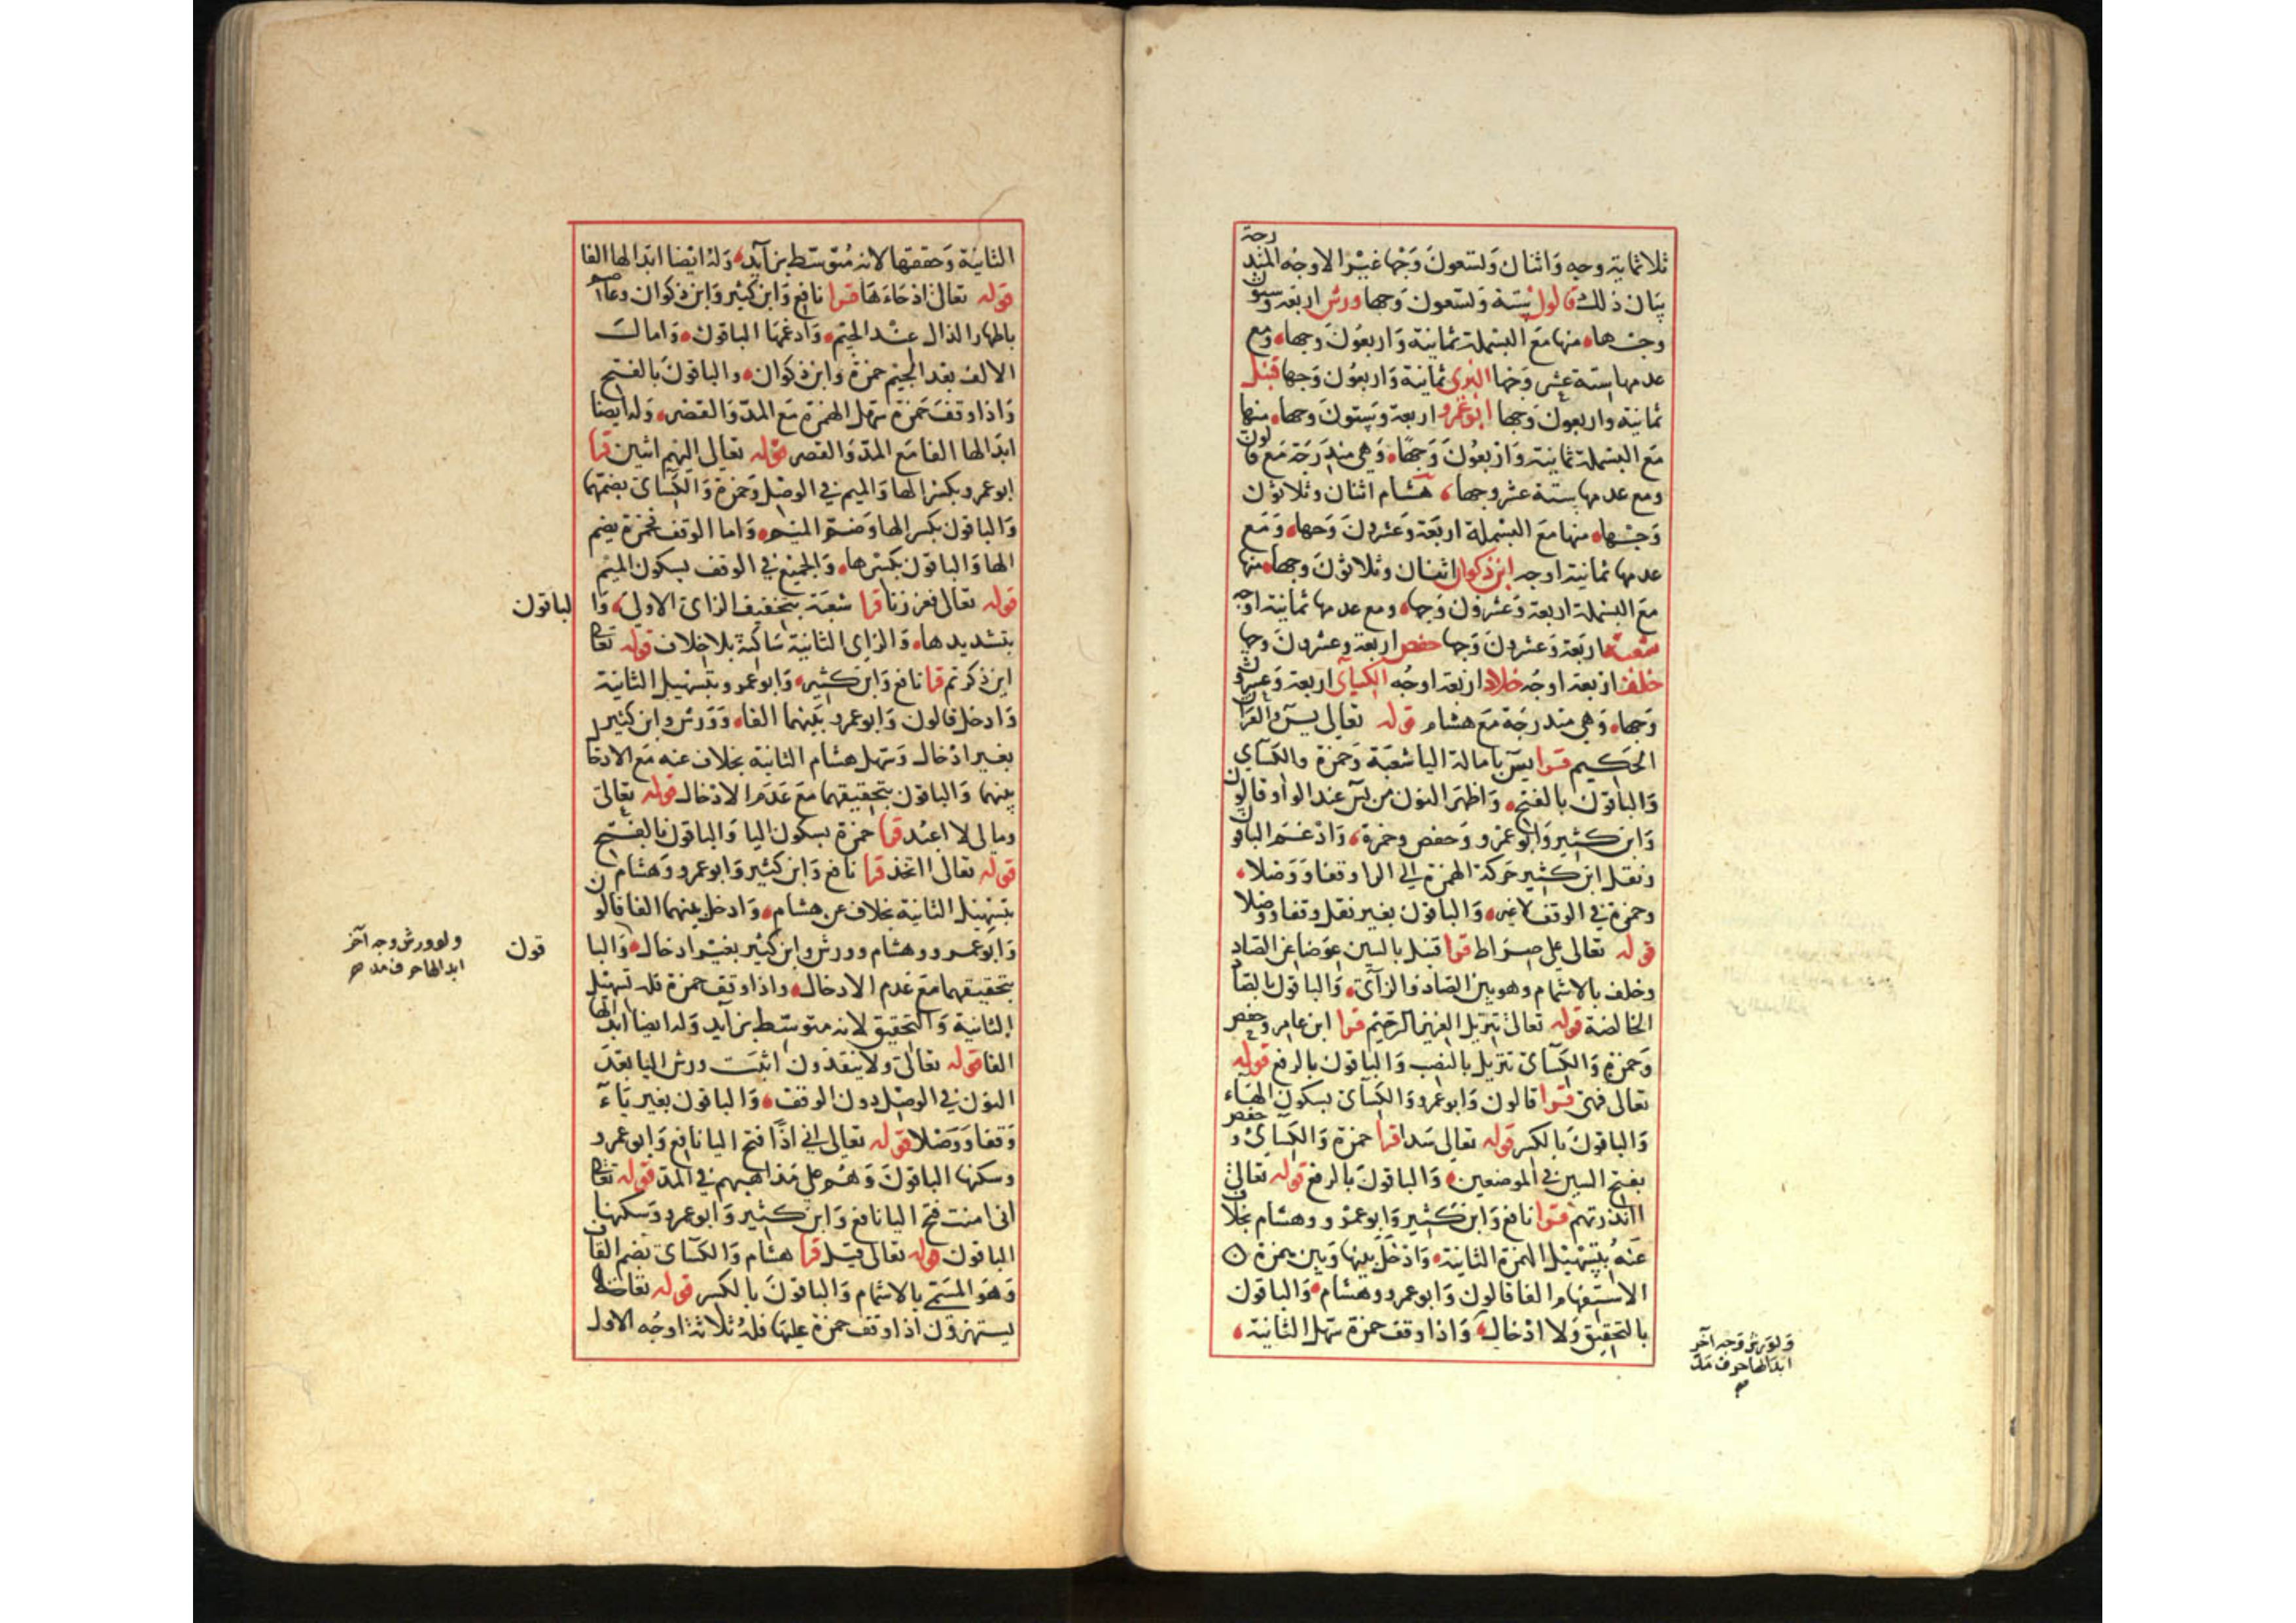 ثلاثماية وجه واثنان وتسعون وجها غير الاوجه المندرجة
بيان ذلك قالون ستة وتسعون وجها ورش اربعة وستون
وجها منها مع البسملة ثمانية واربعون وجها ومع
عدمها ستة عشر وجها البزي ثمانية واربعون وجها قنبل
ثمانية واربعون وجها ابو عمرو اربعة وستون وجها منها
مع البسملة ثمانية واربعون وجها وهي مندرجة مع قالون
ومع عدمها ستة عشر وجها هشام اثنان وثلاثون
وجها منها مع البسملة اربعة وعشرون وجها ومع
عدمها ثمانية اوجه ابن ذكوان اثنان وثلاثون وجها منها
مع البسملة اربعة وعشرون وجها ومع عدمها ثمانية اوجه
شعبة اربعة وعشرون وجها حفص اربعة وعشرون وجها
خلف اربعة اوجه خلاد اربعة اوجه الكسآى اربعة وعشرون
وجها وهي مندرجة مع هشام قوله تعالى يس والقرآن
الحكيم قرا يس بامالة اليا شعبة وحمزة والكسآي
والباقون بالفتح واظهر النون من يس عند الواو قالون
وابن كثير وابو عمرو وحفص وحمزة وادغم الباقون
ونقل ابن كثير حركة الهمزة الى الرا وقفا ووصلا
وحمزة في الوقف لاغير والباقون بغير نقل وقفا ووصلا
قوله تعالى على صراط قرا قنبل بالسين عوضا عن الصاد
وخلف بالاشمام وهو بين الصاد والزآى والباقون بالصاد
الخالصة قوله تعالى تنزيل العزيز الرحيم قرا ابن عامر وحفص
وحمزة والكسآى تنزيل بالنصب والباقون بالرفع قوله
تعالى فهى قرا قالون وابو عمرو والكسآى بسكون الهاء
والباقون بالكسر قوله تعالى سدا قرا حمزة والكسآى وحفص
بفتح السين في الموضعين والباقون بالرفع قوله تعالى
اانذرتهم قرا نافع وابن كثير وابو عمرو وهشام بخلاف
عنه بتسهيل الهمزة الثانية وادخل بينها وبين همزة
الاستفهام الفا قالون وابو عمرو وهشام والباقون
بالتحقيق ولا ادخال واذا وقف حمزة سهل الثانية
ولورش وجه آخر
ابدالها حرف مد
صح
الثانية وحققها لانه متوسط بزآيد وله ايضا ابدالها الفا
قوله تعالى اذ جاءها قرا نافع وابن كثير وابن ذكوان وعاصم
باظهار الذال عند الجيم وادغمها الباقون وامال
الالف بعد الجيم حمزة وابن ذكوان والباقون بالفتح
واذا وقف حمزة سهل الهمزة مع المد والقصر وله ايضا
ابدالها الفا مع المد والقصر قوله تعالى اليهم اثنين قرا
ابو عمرو بكسر الها والميم في الوصل وحمزة والكسآى بضمهما
والباقون بكسر الها وضم الميم واما الوقف فحمزة بضم
الها والباقون بكسرها والجميع في الوقف بسكون الميم
قوله تعالى فعززنا قرا شعبة بتخفيف الزاى الاولى والباقون
بتشديدها والزاى الثانية ساكنة بلا خلاف قوله تعالى
اين ذكرتم قرا نافع وابن كثير وابو عمرو بتسهيل الثانية
وادخل قالون وابو عمرو بينهما الفا وورش وابن كثير
بغير ادخال وسهل هشام الثانية بخلاف عنه مع الادخال
بينهما والباقون بتحقيقهما مع عدم الادخال قوله تعالى
ومالى لا اعبد قرا حمزة بسكون اليا والباقون بالفتح
قوله تعالى ااتخذ قرا نافع وابن كثير وابو عمرو وهشام
بتسهيل الثانية بخلاف عن هشام وادخل بينهما الفا قالون
وابو عمرو وهشام وورش وابن كثير بغير ادخال والباقون
ولورش وجه آخر
ابدالها حرف مد صح
بتحقيقهما مع عدم الادخال واذا وقف حمزة فله تسهيل
الثانية والتحقيق لانه متوسط بزآيد وله ايضا ابدالها
الفا قوله تعالى ولا ينقذون اثبت ورش اليا بعد
النون في الوصل دون الوقف والباقون بغير يآء
وقفا ووصلا قوله تعالى اني اذا فتح اليا نافع وابو عمرو
وسكنها الباقون وهم على مذاهبهم في المد قوله تعالى
انى امنت فتح اليا نافع وابن كثير وابو عمرو وسكنها
الباقون قوله تعالى قيل قرا هشام والكسآى بضم القاف
وهو المسمى بالاشمام والباقون بالكسر قوله تعالى
يستهزؤن اذا وقف حمزة عليها فله ثلاثة اوجه الاول